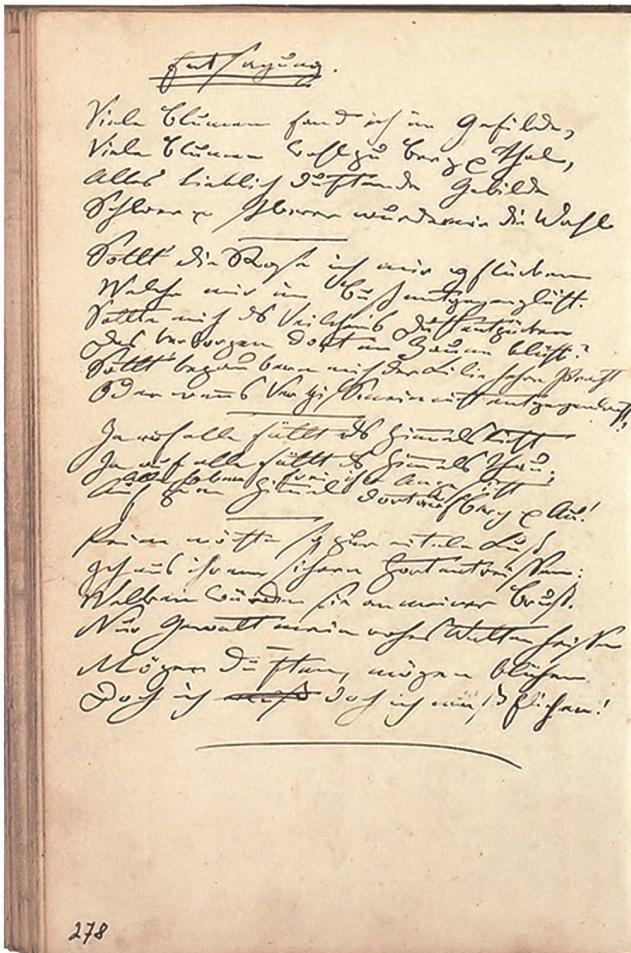 Entsagung.
Viele Blumen fand ich im Gefilde,
Viele Blumen wohl zu Berg & Thal,
Alles lieblich duftende Gebilde
Schwer & schwerer wurde mir die Wahl
Sollt' die Rose ich mir pflücken
Welche mir im entgegenglüht.
Sollte mich des Veilchens Duft entzücken
Das verborgen dort am Zaune blüht?
Sollt' bezaubern mich der Lilie hehre Pracht
Oder wenns Vergißmeinnicht entgegen
Ja auf alle fällt des Himmels Licht
Ja auf alle fällt des Himmels Thau;
Alle haben frei ihr Angesicht
Auf zum Himmel dort auf Berg & Au!
Keine möcht' ich zur eiteln Lust
aus ihrem sichern Hort entreissen:
Welken würden sie an meiner Brust.
Nur Gewalt mein rohes Walten heissen
Mögen duften, mögen blühen
Doch ich doch ich muß fliehen!
278